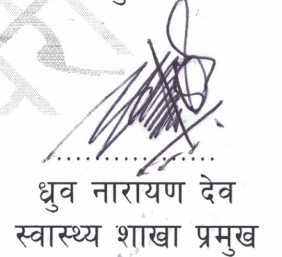 ..................
ध्रुव नारायण देव
स्वास्थ्य शाखा प्रमुख